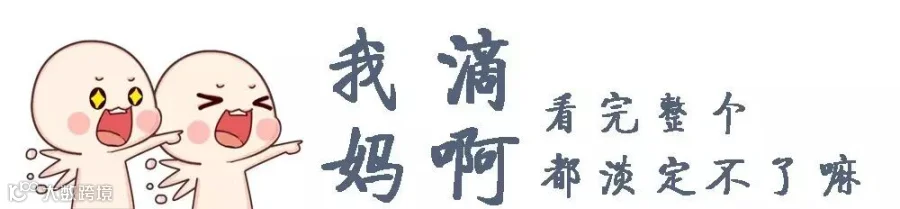 我滴
妈啊
看完整个
都淡定不了嘛
大数跨境